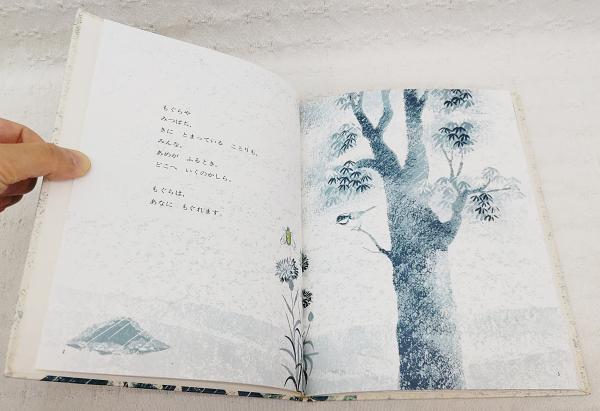 もぐらや
みつばち、
きに　とまっている　ことりも、
みんな、
あめが　ふるとき、
どこへ　いくのかしら。
もぐらは、
あなに　もぐれます。